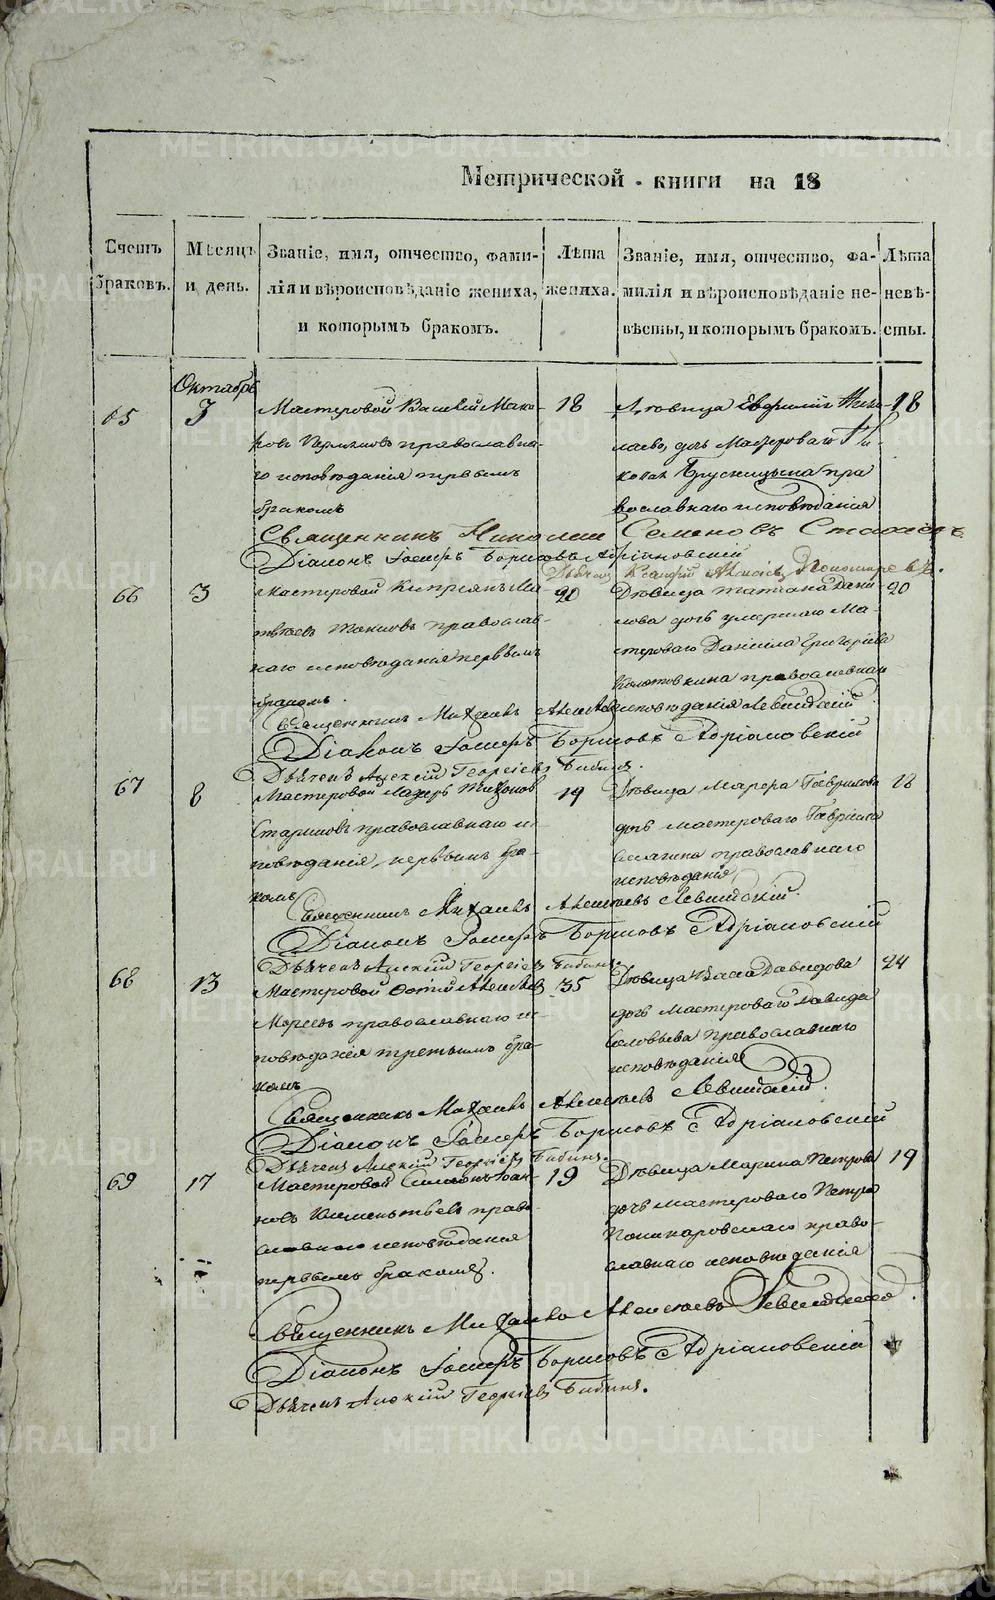 Метрической книги на 18
Счетъ браковъ.
Мѣсяцъ и день.
Званіе, имя, отчество, фами-
лія и вѣроисповѣданіе жениха,
и которымъ бракомъ.
Лѣта
жениха.
Званіе, имя, отчество, фа-
милія и вѣроисповѣданіе не-
вѣсты, и которымъ бракомъ.
Лѣта
невѣ-
сты.
Октабрь
65
3
Мастеровой Василій
православна-
го исповѣданія первымъ
бракомъ
18
Дѣвица Нико-
лаева, дочь Мастероваго Ни-
колая Брусницына пра
вославнаго исповѣданія
18
Священникъ Николай Семеновъ
Діаконъ Борисовъ Адріановскій
66
3
Мастеровой Кипріянъ Ма-
твѣевъ православ-
наго исповѣданія первымъ
бракомъ.
20
Дѣвица Татіана Дани-
лова дочь умершаго Ма-
стероваго Даніила Григорьева
православнаго
исповѣданія
20
Священникъ Михаилъ Алексѣевъ Левицкій
Діаконъ Борисовъ Адріановскій
Дьячекъ Алексій Георгіевъ Бибинъ.
67
8
Мастеровой Лазарь Тихоновъ
Стариковъ православнаго и-
повѣданія, первымъ бра-
комъ
19
Дѣвица Гавриилова
дочь мастероваго Гавріила
православнаго
исповѣданія
18
Священникъ Михаилъ Алексѣевъ Левицкій.
Діаконъ Борисовъ Адріановскій
Дьячекъ Алексій Георгіевъ Бибинъ.
68
13
Мастеровой Фотій Алексѣевъ
православнаго ис-
повѣданія третьимъ бра-
комъ
35
Дѣвица Васса Давидова
дочь мастероваго Давида
Соловьева православнаго
исповѣданія
24
Священникъ Михаилъ Алексѣевъ Левицкій.
Діаконъ Борисовъ Адріановскій
Дьячекъ Алексій Георгіевъ Бибинъ.
69
17
Мастеровой Симеонъ Іоан-
новъ Климентьевъ право-
славнаго исповѣданія
первымъ бракомъ.
19
Дѣвица Марина Петрова
дочь мастероваго Петра
право-
славнаго исповѣданія
19
Священникъ Михаилъ Алексѣевъ Левицкій.
Діаконъ Борисовъ Адріановскій
Дьячекъ Алексій Георгіевъ Бибинъ.
METRIKI.GASO-URAL.RU